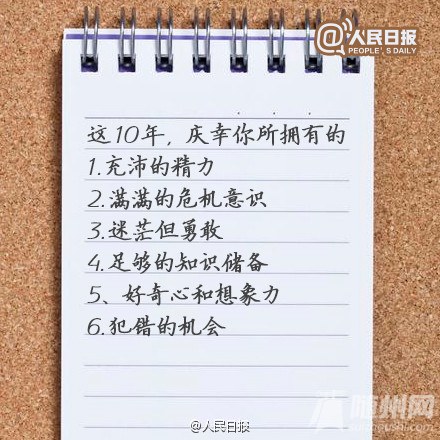 @人民日报
PEOPLE'S DAILY
这10年，庆幸你所拥有的
1.充沛的精力
2.满满的危机意识
3.迷茫但勇敢
4.足够的知识储备
5、好奇心和想象力
6.犯错的机会
随州网
@人民日报